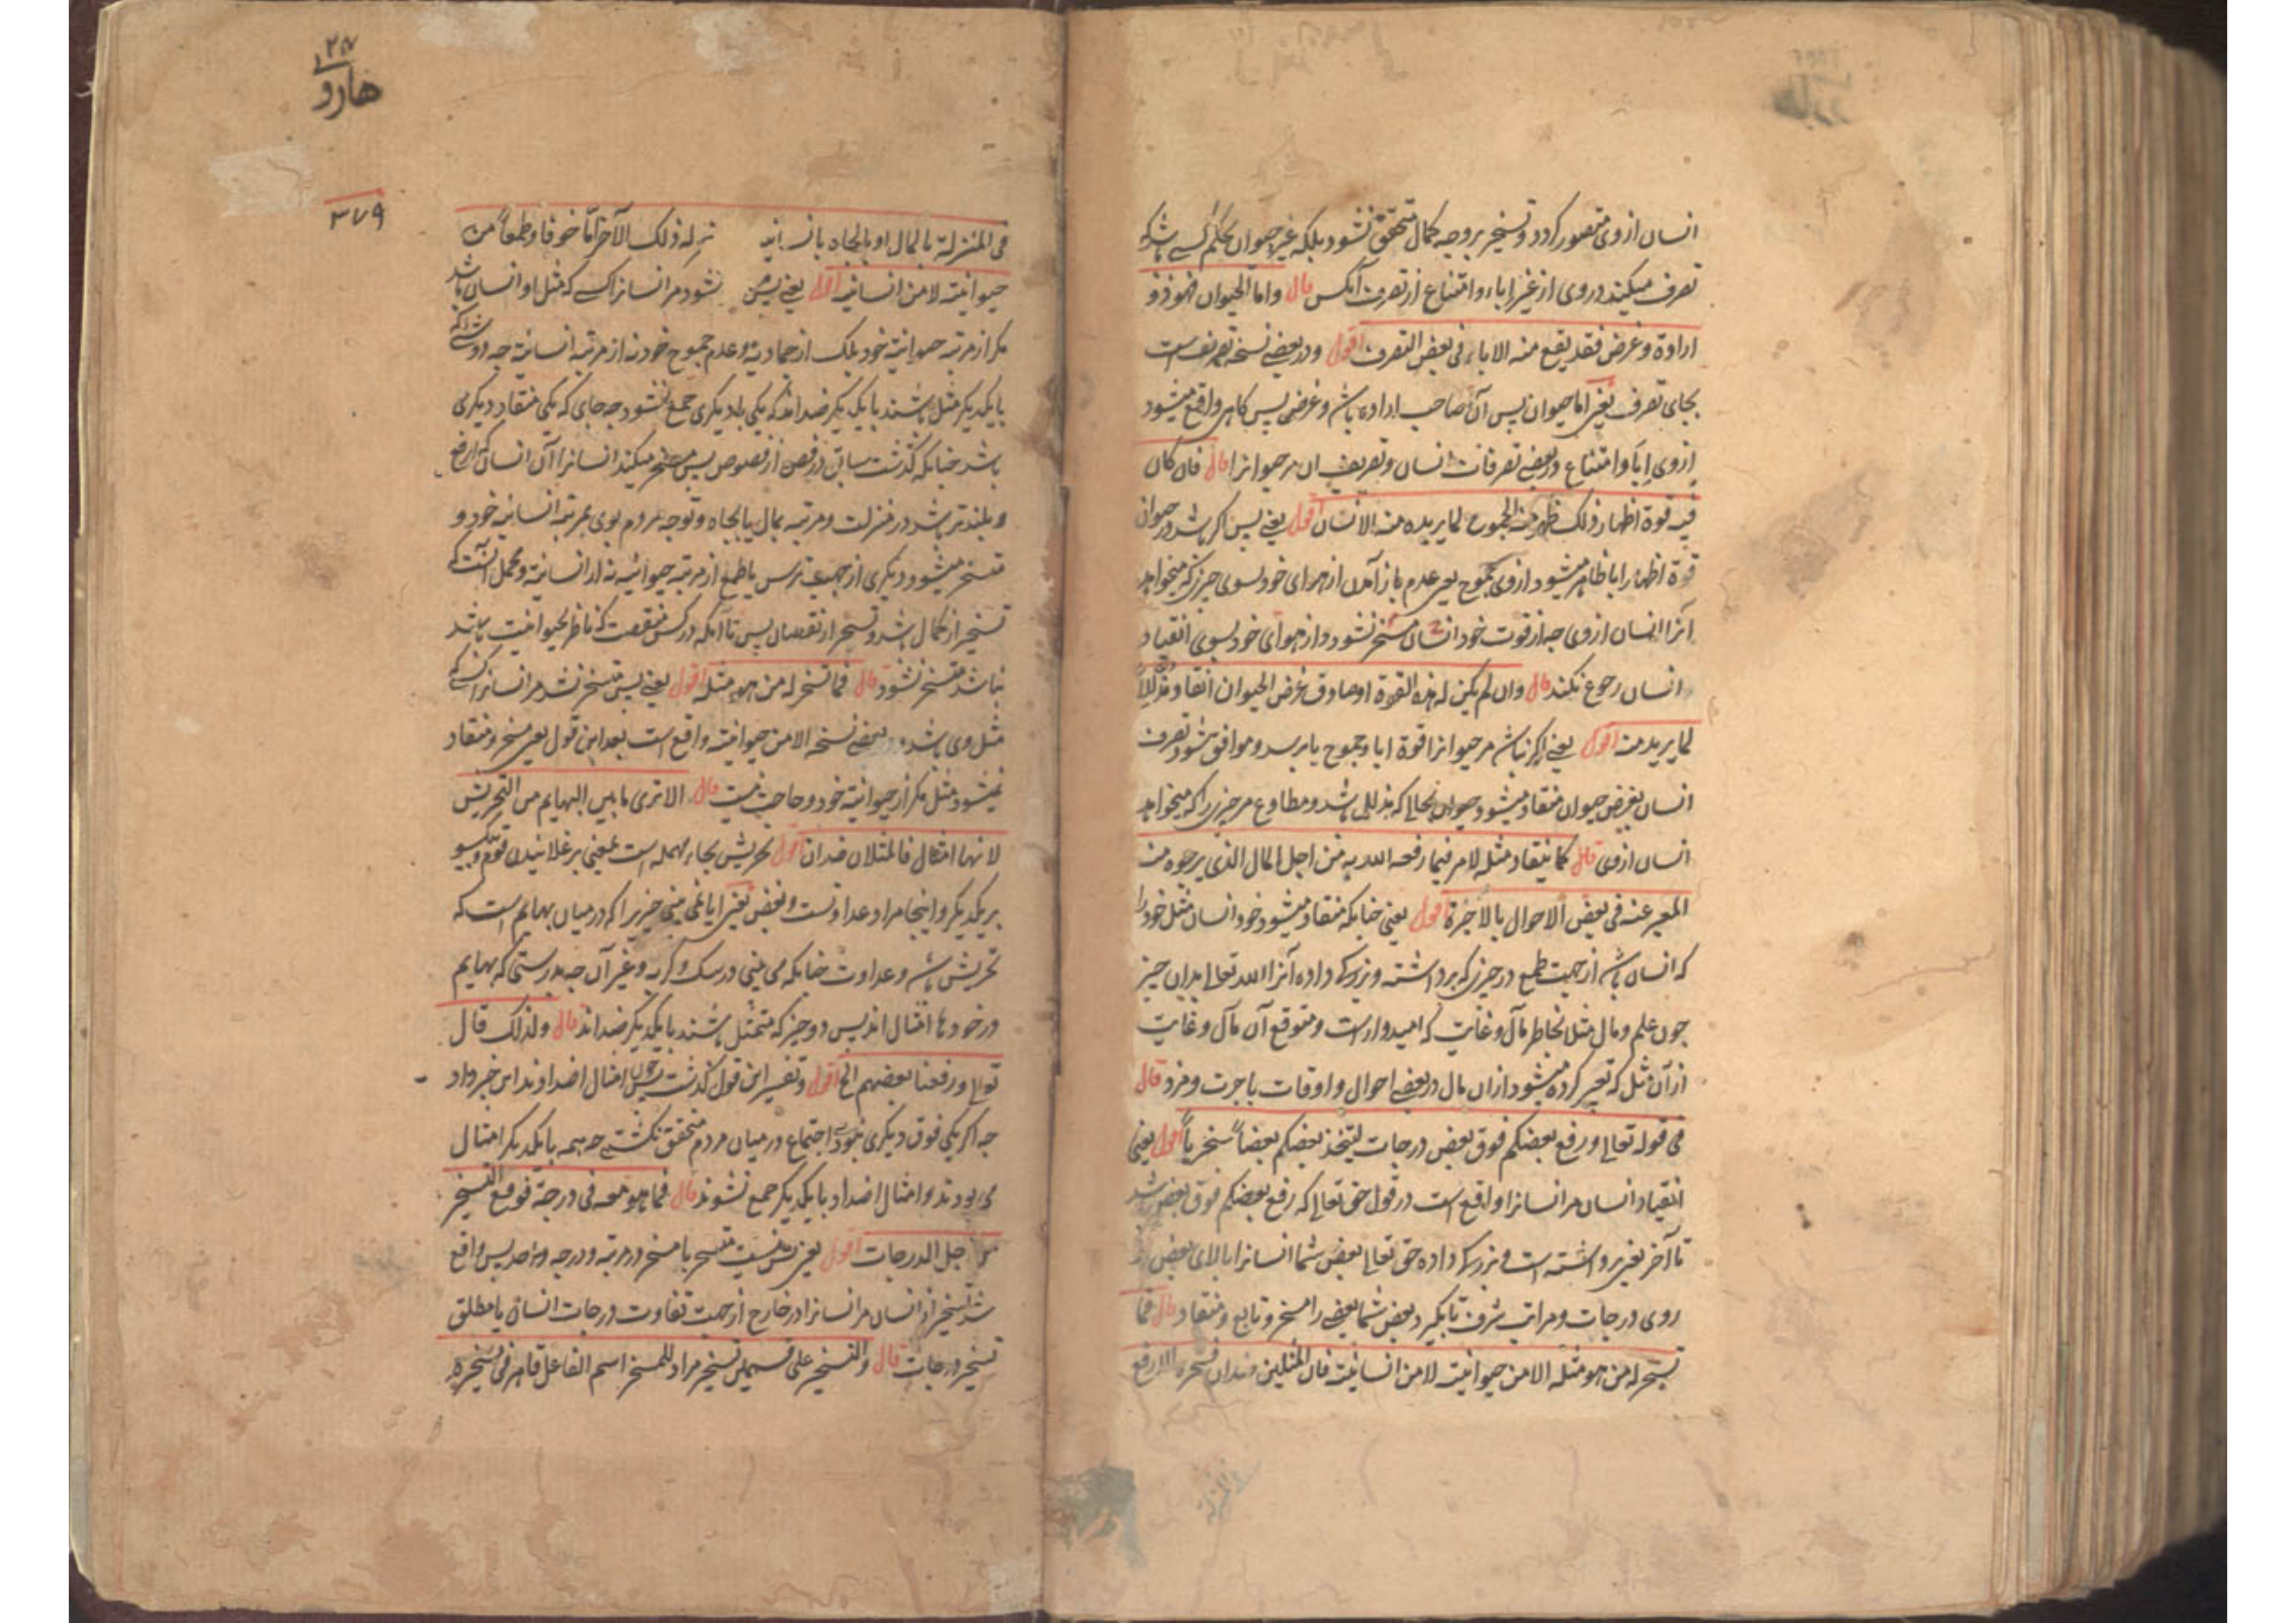 انسان ازوی متصور کردد و تسخیر بروجه کمال متحقق نشود بلکه غیر حیوان بحکم کسے باشد که
تصرف میکند در وی از غیر اباء و امتناع از تصرف آنکس قال واما الحیوان فهو ذو
ارادة وغرض فقد یقع منه الاباء فی بعض التصرف اقول ودر بعضے نسخه تصریفست
بجای تصرف یعنی اما حیوان پس آن صاحب اراده باشد و غرضی پس کاهی واقع میشود
ازوی اباء و امتناع در بعضے تصرفات انسان و تصریف ان مر حیوانرا قال فان کان
فیه قوة اظهار ذلک ظهر منه الجموح لما یریده منه الانسان اقول یعنے پس اکر باشد در حیوان
قوة اظهار ابا ظاهر میشود ازوی جموح یعنی عدم باز آمدن از هوای خود بسوی چیزی که میخواهد
آنرا انسان ازوی چه از قوت خود انسان مسخر نشود و از هوای خود بسوی انقیاد
انسان رجوع نکند قال وان لم یکن له هذه القوة او صادف غرض الحیوان انقاد مذللا
لما یرید منه اقول یعنے اکر نباشد مر حیوانرا قوة ابا و جموح یا برسد و موافق شود تصرف
انسان بغرض حیوان منقاد میشود حیوان بحالی که مذلل باشد و مطاوع مر چیزی را که میخواهد
انسان ازوی قال کما ینقاد مثله لامر فیما رفعه الله به من اجل المال الذی یرجوه منه
المعبر عنه فی بعض الاحوال بالاجرة اقول یعنی چنانکه منقاد میشود خود انسان مثل خود را
که انسان باشد از جهت طمع در چیزی که برداشته و بزرکی داده آنرا الله تعالی بدان چیز
چون علم و مال مثل بخاطر مآل و غایت که امیدوار است و متوقع آن مآل و غایت
از آن مثل که تعبیر کرده میشود ازان مال در بعضے احوال و اوقات باجرت و مزد قال
فی قوله تعالی ورفع بعضکم فوق بعض درجات لیتخذ بعضکم بعضاً سخریاً اقول یعنی
انقیاد انسان مر انسانرا واقع است در قول حق تعالی که رفع بعضکم فوق بعض باشد
تا آخر یعنی برداشته است و بزرکی داده حق تعالی بعض شما انسانرا بالای بعض از
روی درجات و مراتب شرف تا بکیرد بعض شما بعضے را مسخر و تابع و منقاد قال فما
تسخر له من هو مثله الا من حیوانیته لا من انسانیته فان المثلین ضدان فسخره الارفع
فی المنزلة
۲۸
هارو
۳۷۹
فی المنزلة بالمال او بالجاه بانسانیته له ذلک الآخر اما خوفا وطمعاً من
حیوانیته لا من انسانیته اقول یعنے پس نشود مر انسانرا کسے که مثل او انسان باشد
مکر از مرتبه حیوانیة خود بلک از جمادیة و عدم جموح خود نه از مرتبه انسانیة چه دو شئے که
بایکدیکر مثل باشند بایکدیکر ضداند که یکی بادیکری جمع نشود چه جای که یکی منقاد دیکری
باشد چنانکه کذشت سابق در فص از فصوص پس مسخر میکند انسانرا آن انسان که ارفع
و بلندتر باشد در منزلت و مرتبه بمال یا بجاه و توجه مردم بوی بمرتبه انسانیه خود و
متسخر میشود دیکری از جهت ترس یا طمع از مرتبه حیوانیه نه از انسانیة و محمل آنست که
تسخیر از کمال باشد و تسخر از نقصان پس تا آنکه در کس منقصت که ناظر بحیوانیت باشد
نباشد متسخر نشود قال فما تسخر له من هو مثله اقول یعنے پس متسخر نشد مر انسانرا کسے که
مثل وی باشد ودر بعضے نسخه الا من حیوانیته واقع است بعد این قول یعنی مسخر و منقاد
نمیشود مثل مکر از حیوانیة خود و حاجت نیست قال الا تری ما بین البهایم من التحریش
لانها امثال فالمثلان ضدان اقول تحریش بحاء مهمله است بمعنی برغلانیدن قوم و
بریکدیکر و اینجا مراد عداوتست و بغض یعنی ایا نمی بینی چیزیرا که درمیان بهایم است که
تحریش باشد و عداوت چنانکه می بینی در سک و کربه و غیر آن چه بدرستی که بهایم
در خودها امثال اند پس دو چیز که متمثل باشند بایکدیکر ضداند قال ولذلک قال
تعالی ورفعنا بعضهم الخ اقول و تفسیر این قول کذشت پس چون امثال اضداد اند این خبر داد
چه اکر یکی فوق دیکری نبودی اجتماع درمیان مردم متحقق نکشتے چه همه بایکدیکر امثال
می بودند و امثال اضداد بایکدیکر جمع نشوند قال فما هو معه فی درجة فوقع التسخیر
من اجل الدرجات اقول یعنی پس نیست متسخر با مسخر در مرتبه و درجه واحد پس واقع
شد تسخیر از انسان مر انسانرا در خارج از جهت تفاوت درجات انسان یا مطلق
تسخیر درجات قال والتسخیر علی قسمین تسخیر مراد للمسخر اسم الفاعل قاهر فی تسخیره